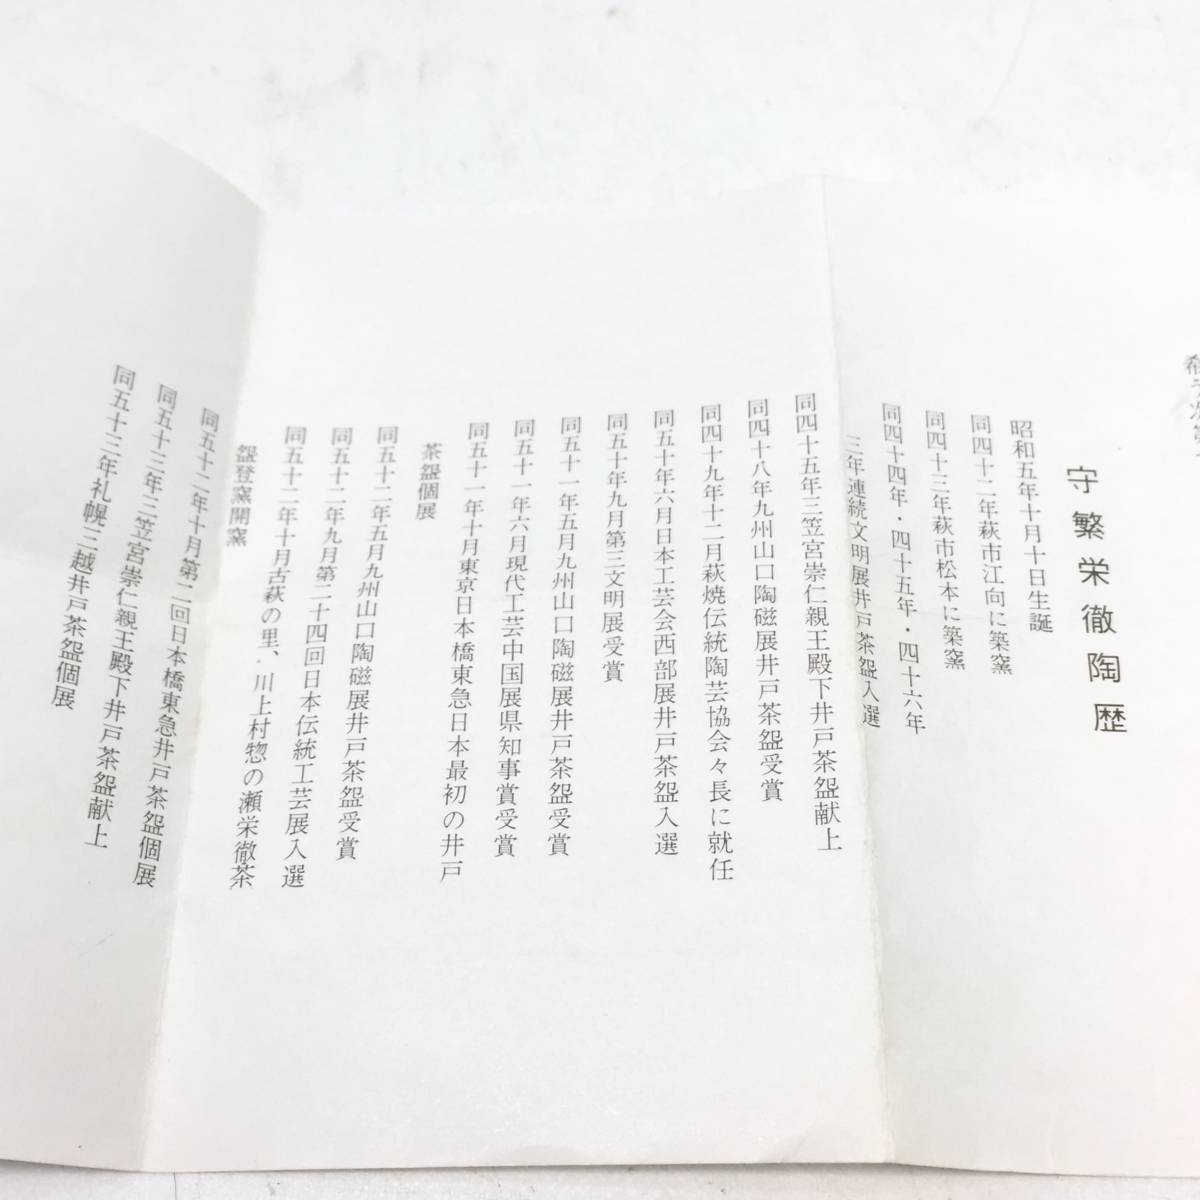 守繁栄徹陶歴
昭和五年十月十日生誕
同四十二年萩市江向に築窯
同四十三年萩市松本に築窯
同四十四年・四十五年・四十六年
三年連続文明展井戸茶盌入選
同四十五年三笠宮崇仁親王殿下井戸茶盌献上
同四十八年九州山口陶磁展井戸茶盌受賞
同四十九年十二月萩焼伝統陶芸協会々長に就任
同五十年六月日本工芸会西部展井戸茶盌入選
同五十年九月第三文明展受賞
同五十一年五月九州山口陶磁展井戸茶盌受賞
同五十一年六月現代工芸中国展県知事賞受賞
同五十一年十月東京日本橋東急日本最初の井戸
茶盌個展
同五十二年五月九州山口陶磁展井戸茶盌受賞
同五十二年九月第二十四回日本伝統工芸展入選
同五十二年十月古萩の里、川上村惣の瀬栄徹茶
盌登窯開窯
同五十二年十月第二回日本橋東急井戸茶盌個展
同五十三年三笠宮崇仁親王殿下井戸茶盌献上
同五十三年札幌三越井戸茶盌個展